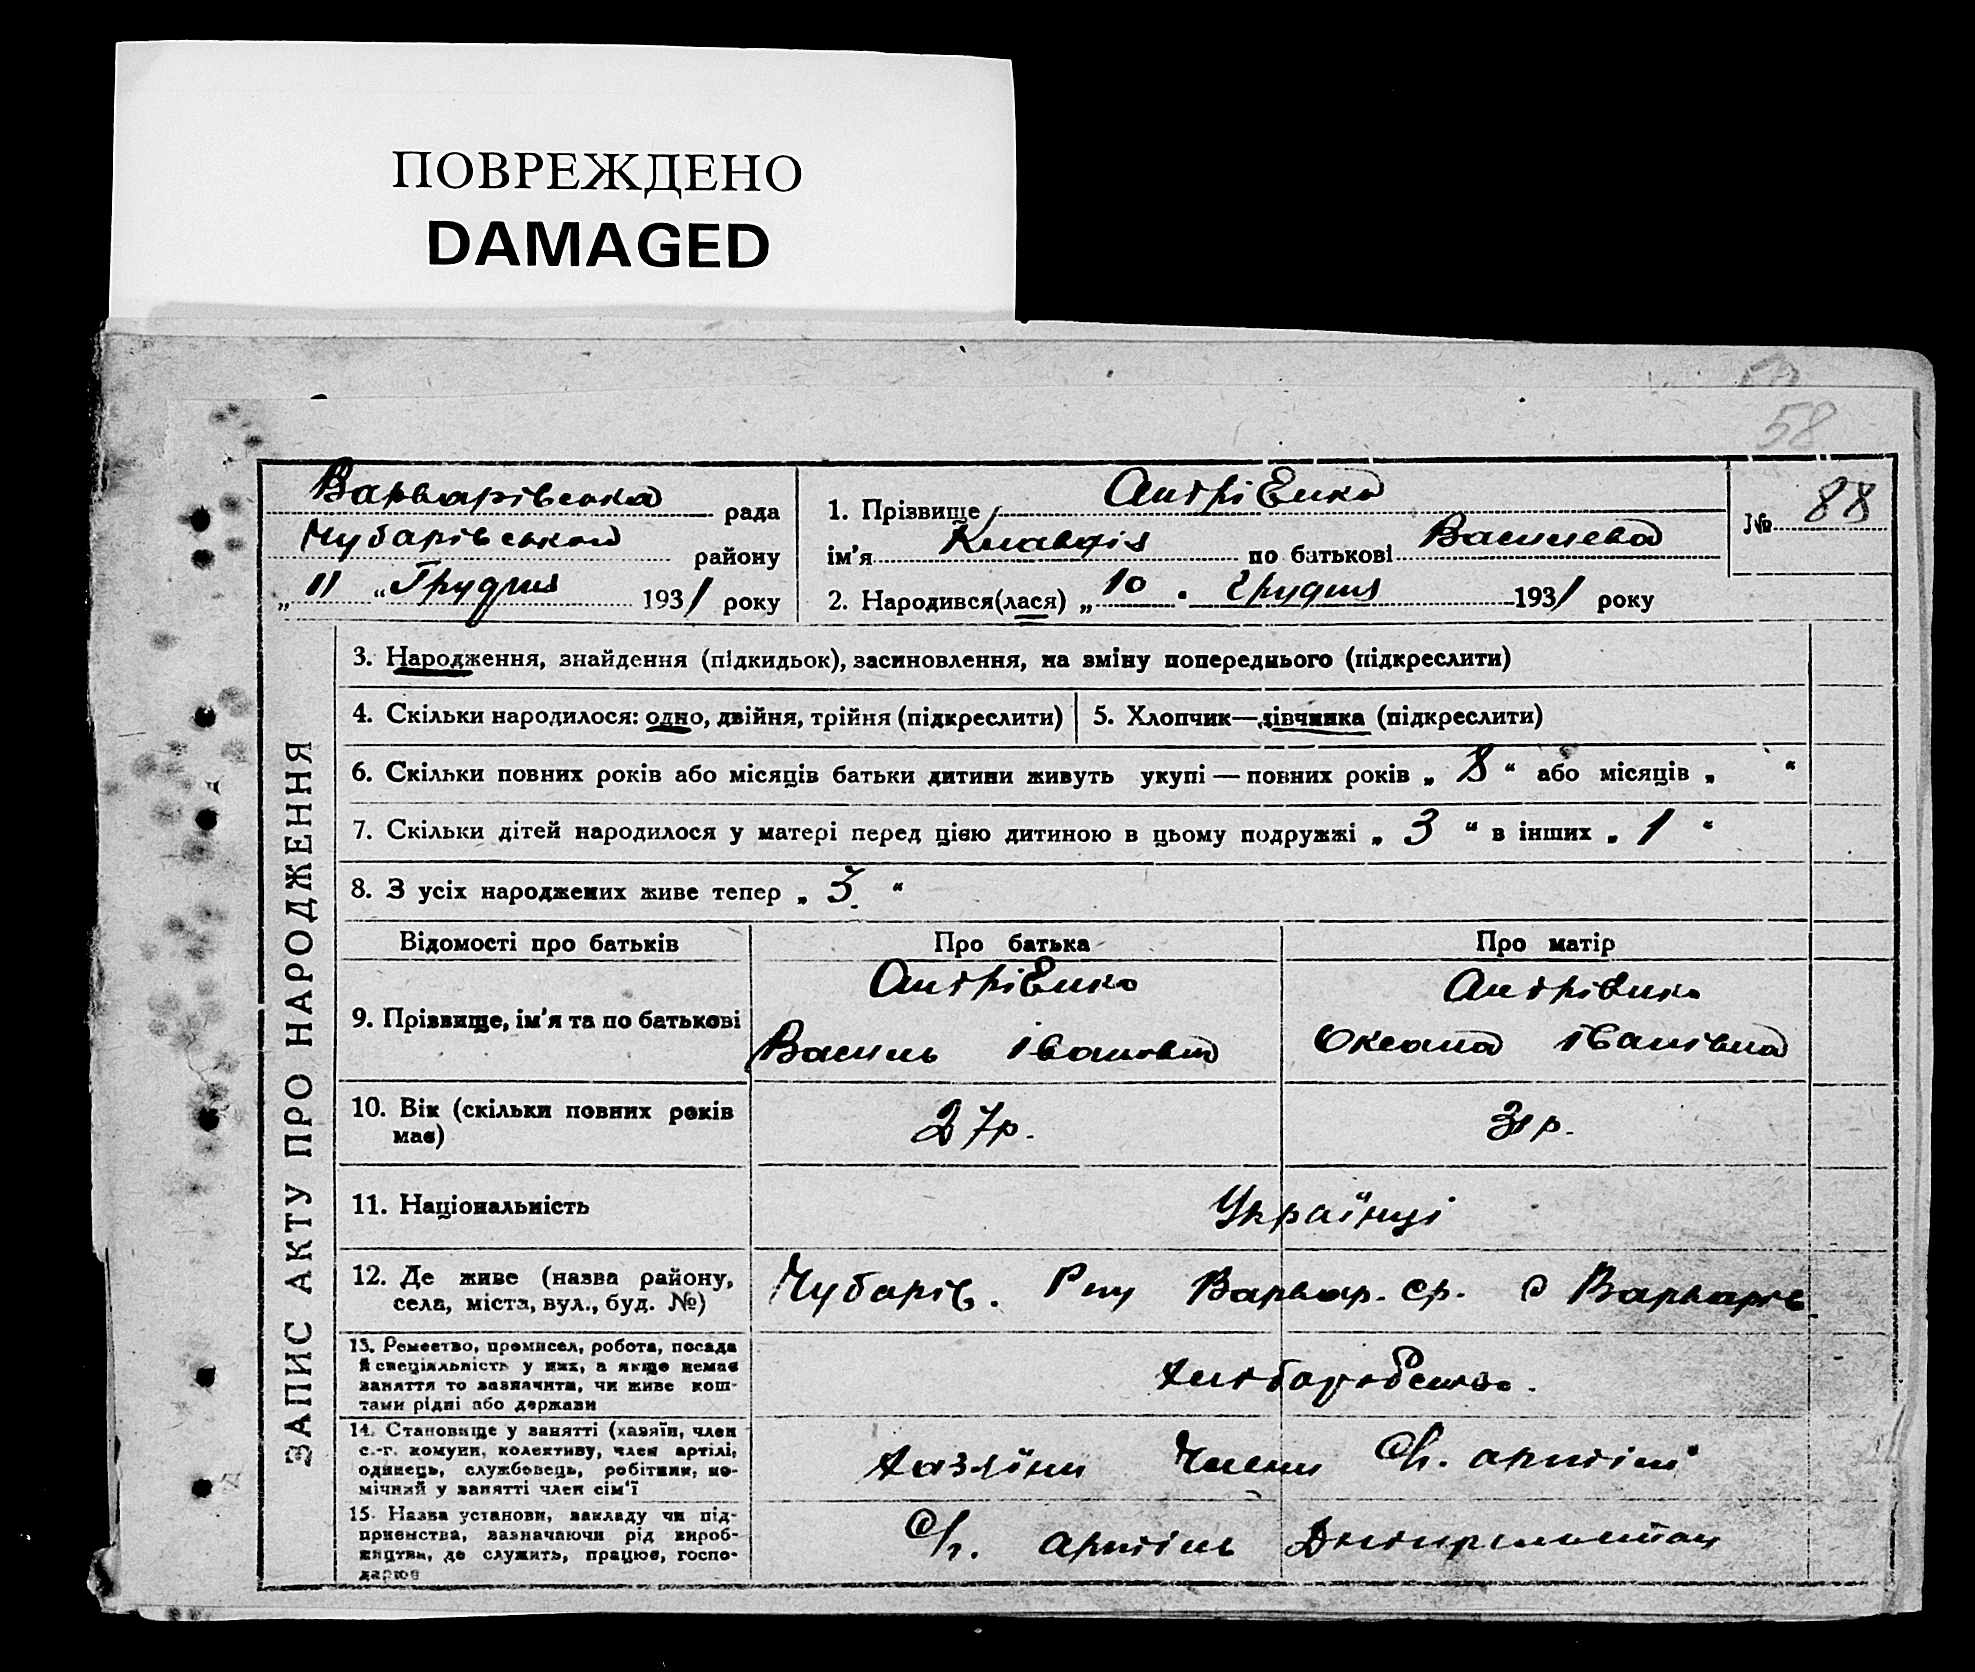 ПОВРЕЖДЕНО
DAMAGED
58
ЗАПИС АКТУ ПРО НАРОДЖЕННЯ
Варварівська рада
Чубарівського району
„ 11 “ Грудня 1931 року
1. Прізвище Андрієнко
ім'я Клавдія по батькові Василева
2. Народився(лася) „ 10 . Грудня 1931 року
№ 88
3. Народження, знайдення (підкидьок), засиновлення, на зміну попереднього (підкреслити)
4. Скільки народилося: одно, двійня, трійня (підкреслити)
5. Хлопчик—дівчинка (підкреслити)
6. Скільки повних років або місяців батьки дитини живуть укупі — повних років „ 8 “ або місяців „ “
7. Скільки дітей народилося у матері перед цією дитиною в цьому подружжі „ 3 “ в інших „ 1 “
8. З усіх народжених живе тепер „ 3 “
Відомості про батьків
Про батька
Про матір
9. Прізвище, ім'я та по батькові
Андрієнко
Василь Іванович
Андрієнко
Оксана Іванівна
10. Вік (скільки повних років
має)
27р.
31р.
11. Національність
Українці
12. Де живе (назва району,
села, міста, вул., буд. №)
Чубарів. Р-ну Варвар. ср. с Варварів
13. Ремество, промисел, робота, посада
й спеціяльність у них, а якщо немає
заняття то зазначити, чи живе кош-
тами рідні або держави
Хліборобство.
14. Становище у занятті (хазяїн, член
с.-г. комуни, колективу, член артілі,
одинець, службовець, робітник, по-
мічний у занятті член сім'ї
Хазяїни Члени С/г. артілі
15. Назва установи, закладу чи під-
приємства, зазначаючи рід вироб-
ництва, де служить, працює, госпо-
дарює
С/г. артіль